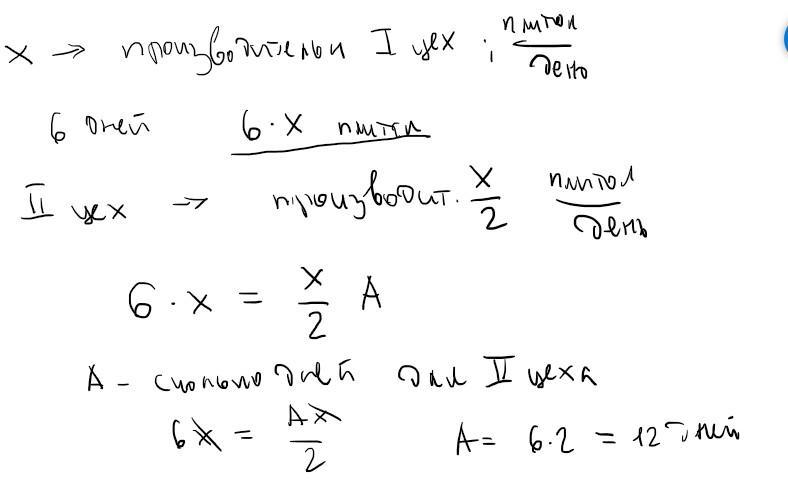 x → производительн I цех ; питол/день
6 дней 6·x питол
II цех → производит. x/2 питол/день
6·x = x/2 A
A - сколько дней для II цеха
6x = Ax/2 A = 6·2 = 12 дней